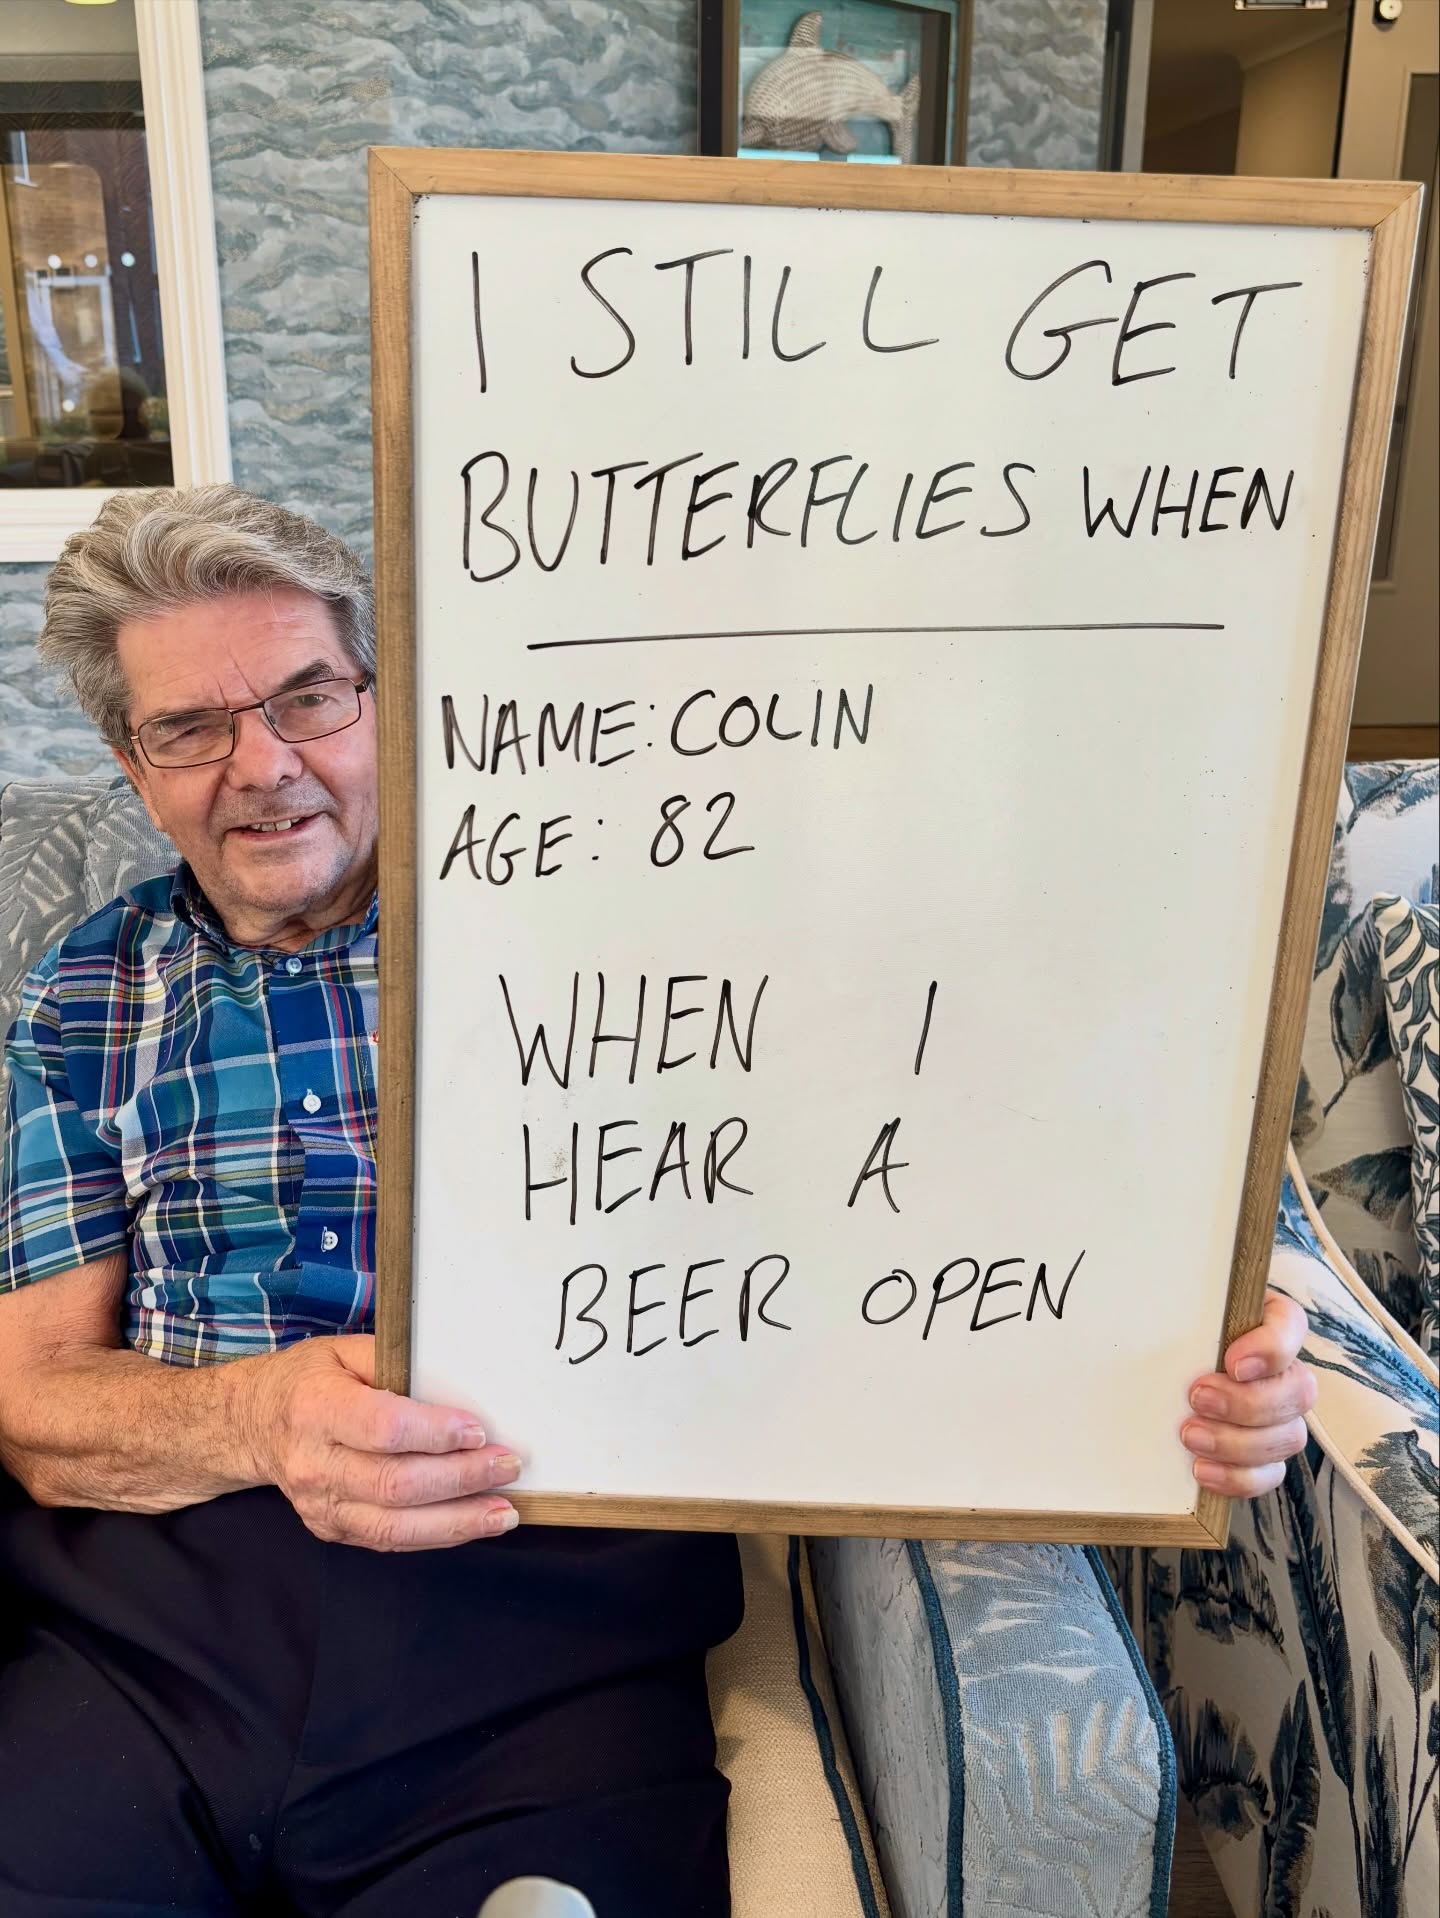 I STILL GET
BUTTERFLIES WHEN
NAME: COLIN
AGE: 82
WHEN I
HEAR A
BEER OPEN